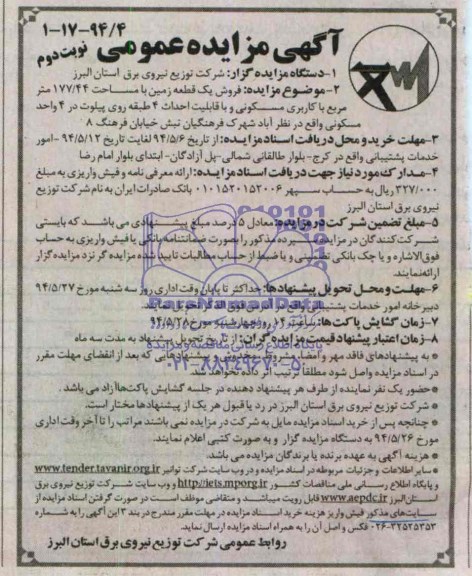 ۱-۱۷-۹۴/۴
آگهی مزایده عمومی
نوبت دوم
۱-دستگاه مزایده گزار: شرکت توزیع نیروی برق استان البرز
۲-موضوع مزایده: فروش یک قطعه زمین با مساحت ۱۷۷/۴۴ متر
مربع با کاربری مسکونی و با قابلیت احداث ۴ طبقه روی پیلوت در ۴ واحد
مسکونی واقع در نظر آباد شهرک فرهنگیان نبش خیابان فرهنگ ۸
۳-مهلت خرید و محل دریافت اسناد مزایده: از تاریخ ۹۴/۵/۶ لغایت تاریخ ۹۴/۵/۱۲ -امور
خدمات پشتیبانی واقع در کرج- بلوار طالقانی شمالی-پل آزادگان- ابتدای بلوار امام رضا
۴-مدارک مورد نیاز جهت دریافت اسناد مزایده: ارائه معرفی نامه و فیش واریزی به مبلغ
۳۲۷/۰۰۰ ریال به حساب سپهر ۰۱۰۱۵۲۰۱۵۲۰۰۶ بانک صادرات ایران به نام شرکت توزیع
نیروی برق استان البرز
۵-مبلغ تضمین شرکت در مزایده: معادل ۵ درصد مبلغ پیشنهادی می باشد که بایستی
شرکت کنندگان در مزایده سپرده مذکور را بصورت ضمانتنامه بانکی یا فیش واریزی به حساب
فوق الاشاره و یا چک بانکی تضمینی و یا ضبط از حساب مطالبات تایید شده مزایده گر نزد مزایده گزار
ارائه نمایند.
۶-مهلت و محل تحویل پیشنهادها: حداکثر تا پایان وقت اداری روز سه شنبه مورخ ۹۴/۵/۲۷
دبیرخانه امور خدمات پشتیبانی واقع در آدرس فوق الذکر تحویل نمایند.
۷-زمان گشایش پاکت ها: ساعت ۱۴ روز چهارشنبه مورخ ۹۴/۵/۲۸
۸-زمان اعتبار پیشنهاد قیمت مزایده گران: از تاریخ تحویل پیشنهاد به مدت سه ماه
* به پیشنهادهای فاقد مهر و امضا، مشروط، مخدوش و پیشنهادهایی که بعد از انقضای مهلت مقرر
در اسناد مزایده واصل شود مطلقا ترتیب اثر داده نخواهد شد.
*حضور یک نفر نماینده از طرف هر پیشنهاد دهنده در جلسه گشایش پاکت ها آزاد می باشد.
* شرکت توزیع نیروی برق استان البرز در رد یا قبول هر یک از پیشنهادها مختار است.
* چنانچه پس از خرید اسناد مزایده مایل به شرکت در مزایده نمی باشند مراتب را تا آخر وقت اداری
مورخ ۹۴/۵/۲۶ به دستگاه مزایده گزار و به صورت کتبی اعلام نمایند.
* هزینه آگهی به عهده برنده یا برندگان مزایده می باشد.
* سایر اطلاعات و جزئیات مربوطه در اسناد مزایده و در وب سایت شرکت توانیر www.tender.tavanir.org.ir
و پایگاه اطلاع رسانی ملی مناقصات کشور http://iets.mporg.ir و وب سایت شرکت توزیع نیروی برق
استان البرز www.aepdc.ir قابل رویت میباشد و متقاضی موظف است در صورت گرفتن اسناد مزایده از
سایت های مذکور فیش واریز هزینه خرید اسناد مزایده در مهلت مقرر مندرج در بند ۳ این آگهی را به شماره
۰۲۶-۳۲۵۲۵۳۵۳ فکس و اصل آن را به همراه اسناد مزایده ارسال نماید.
روابط عمومی شرکت توزیع نیروی برق استان البرز
پایگاه اطلاع رسانی مناقصه و مزایده
۰۲۱-۸۸۳۴۹۶۷۰-۵